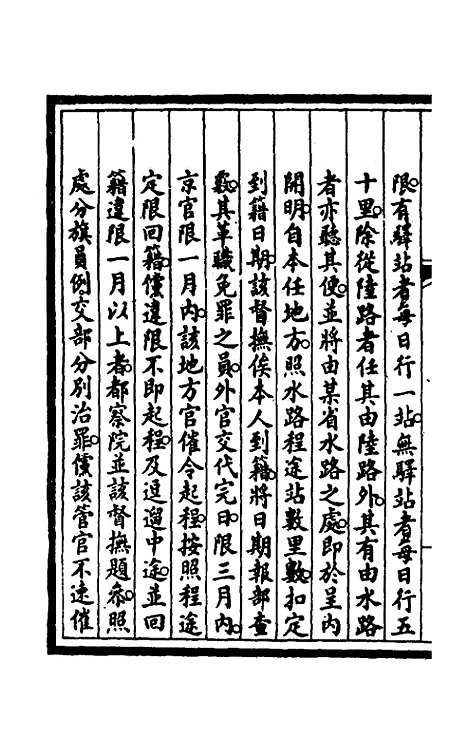 限有驛站者每日行一站無驛站者每日行五
十里除從陸路者任其由陸路外其有由水路
者亦聽其便並將由某省水路之處即於呈內
開明自本任地方照水路程途站數里數扣定
到籍日期該督撫俟本人到籍將日期報部查
覈其革職免罪之員外官交代完日限三月內
京官限一月內該地方官催令起程按照程途
定限回籍儻違限不即起程及逗遛中途並回
籍違限一月以上者都察院並該督撫題參照
處分旗員例交部分別治罪儻該管官不速催